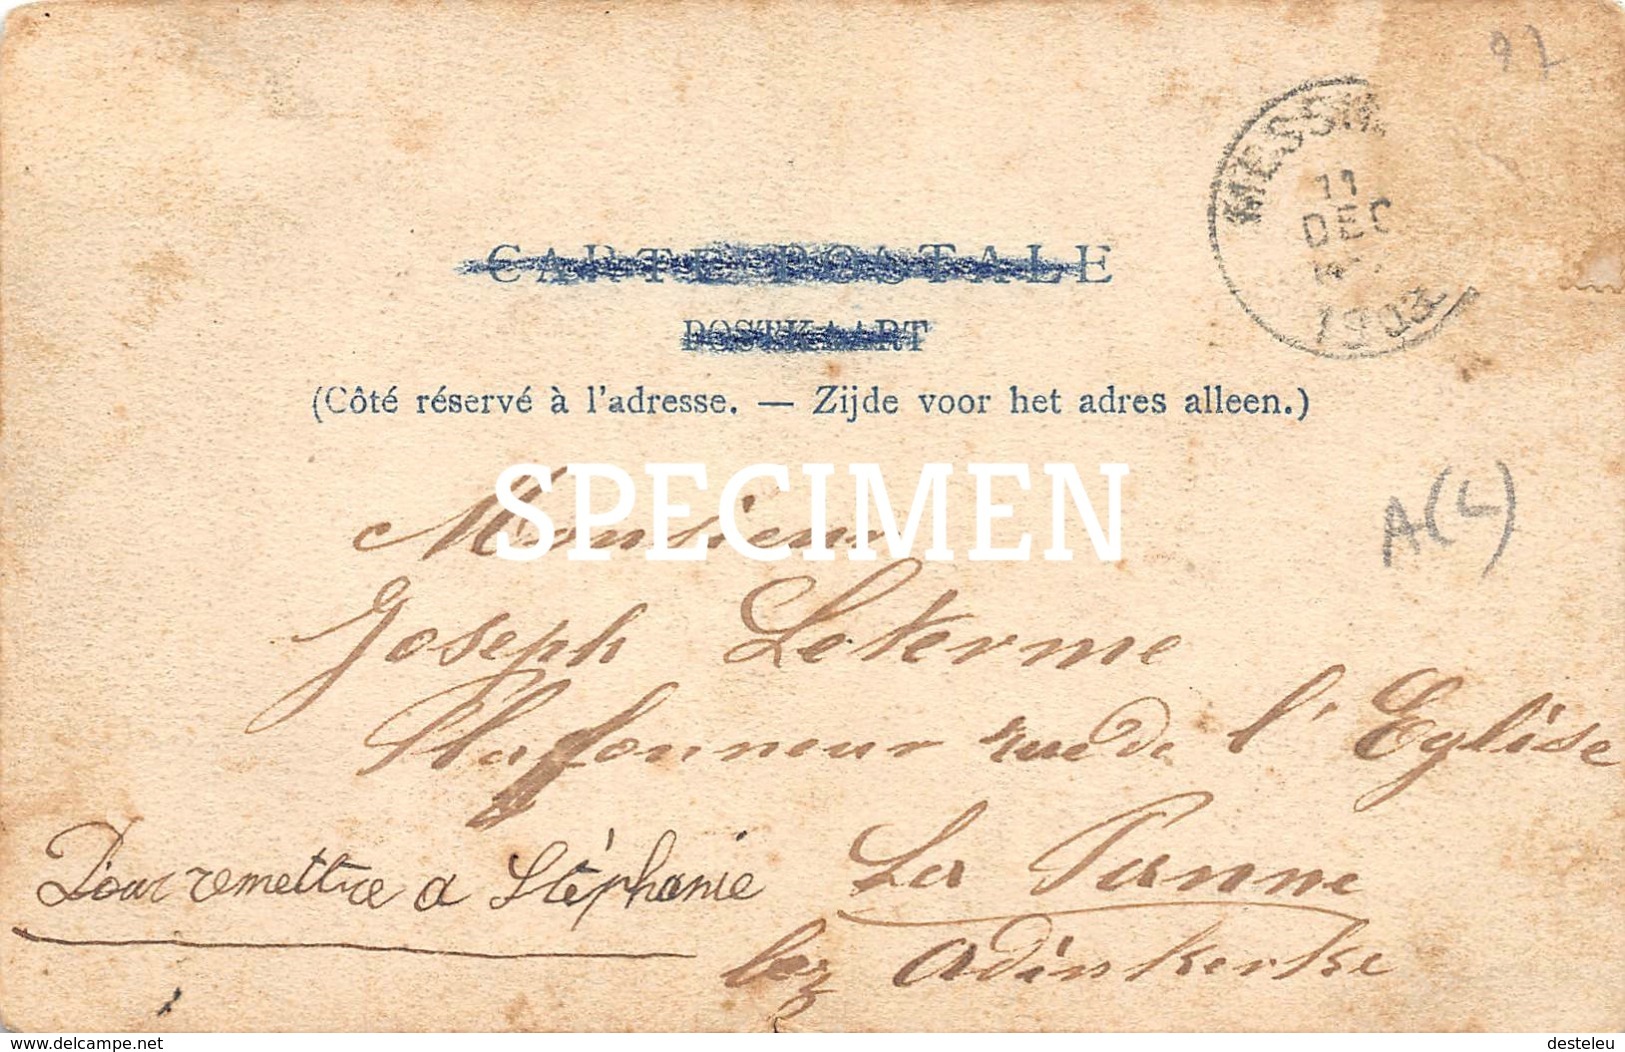 97
MESSIN
11
DEC
1903
CARTE POSTALE
POSTKAART
(Côté réservé à l'adresse. — Zijde voor het adres alleen.)
SPECIMEN
A(L)
Monsieur
Joseph Leterme
Plafonneur rue de l'Eglise
La Panne
Pour remettre a Stéphanie
bez Adinkerke
www.delcampe.net
desteleu